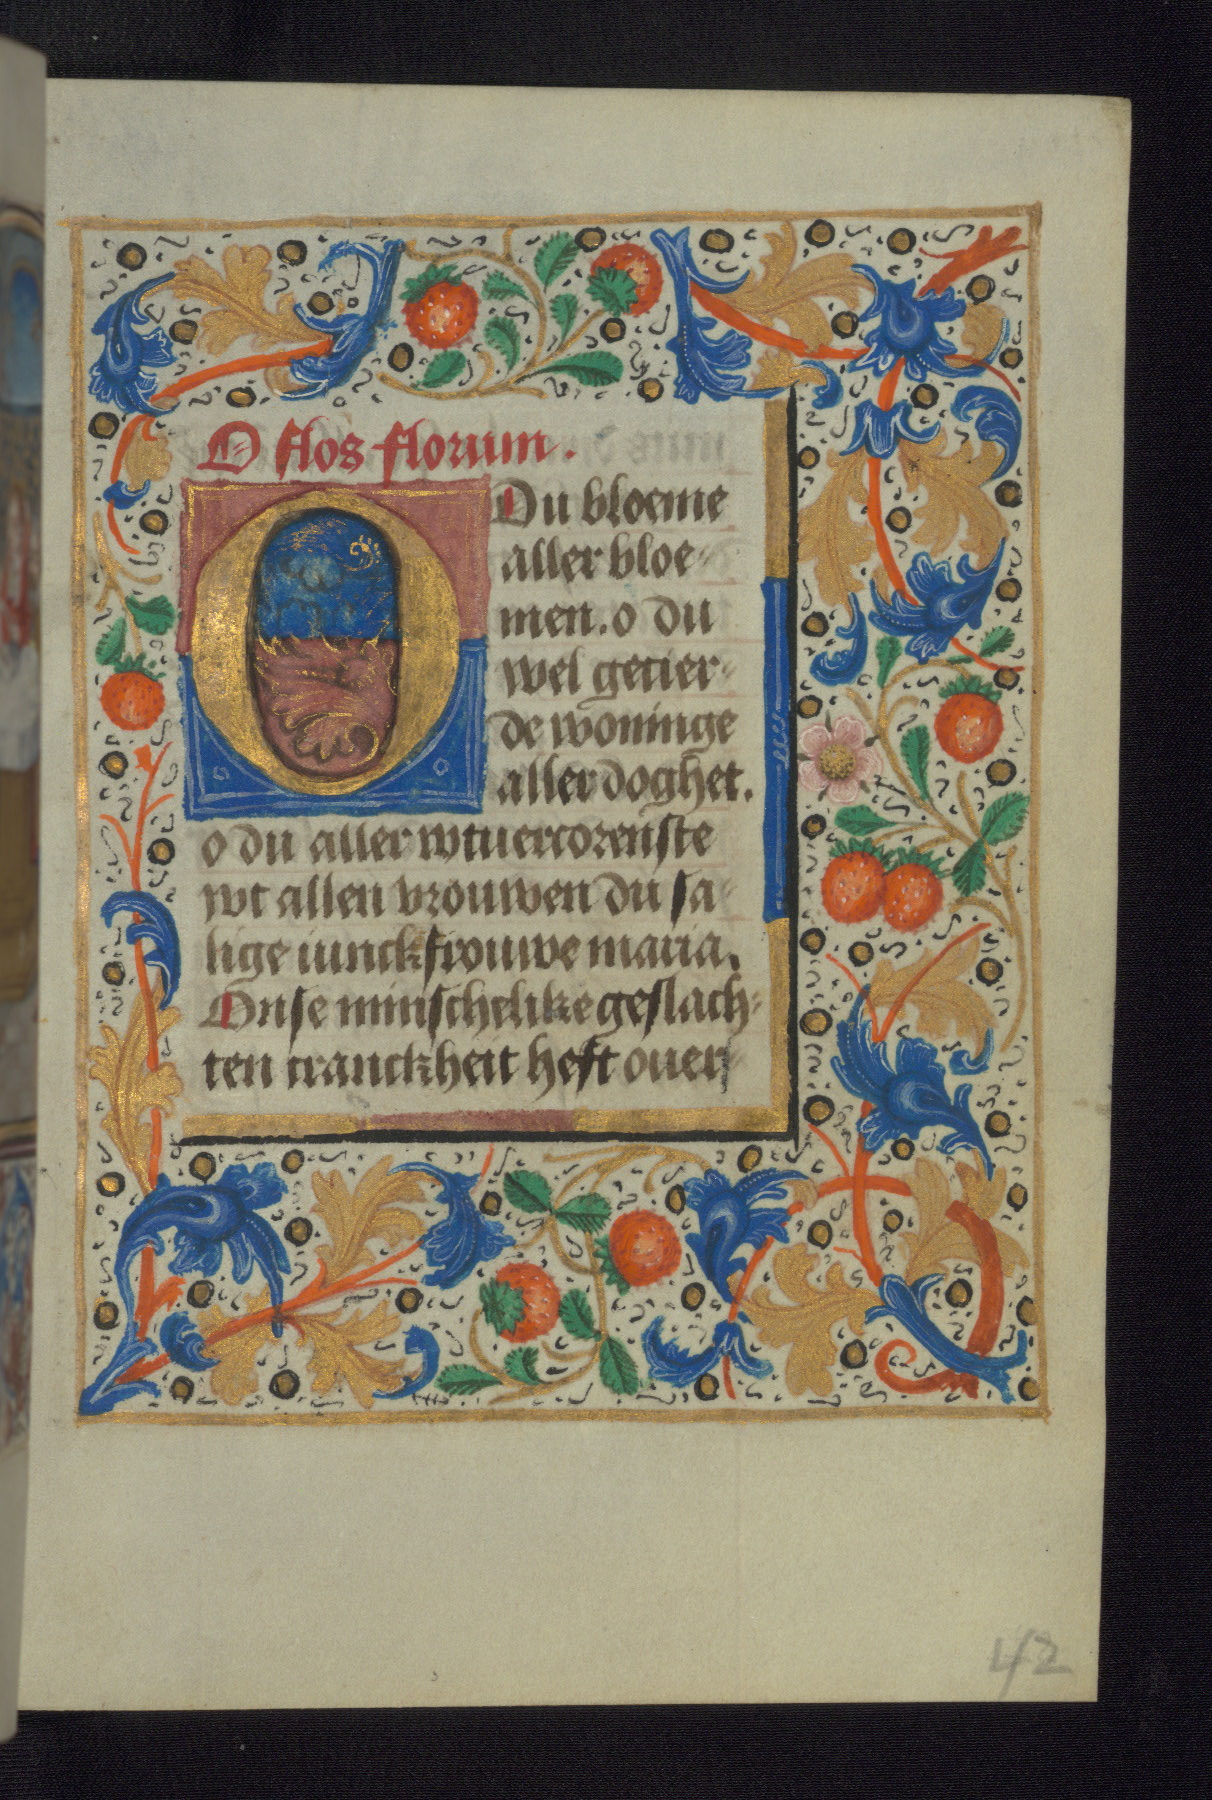 O flos florum.
O Du bloeme
aller bloe-
men. o du
wel getier-
de woninge
aller doghet.
o du aller wtuercorenste
wt allen vrouwen du sa-
lige iunckfrouwe maria.
Onse minschelike geslach-
ten cranckheit heft ouer-
42